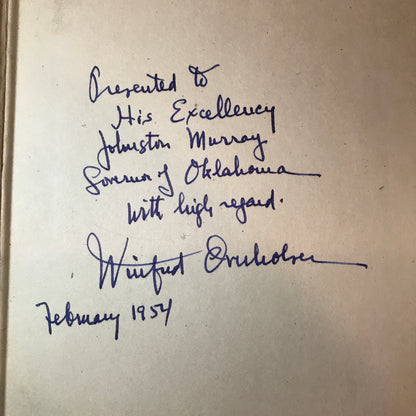 Presented to
His Excellency
Johnston Murray
Governor of Oklahoma
With high regard.
Winfred Overholser
February 1954